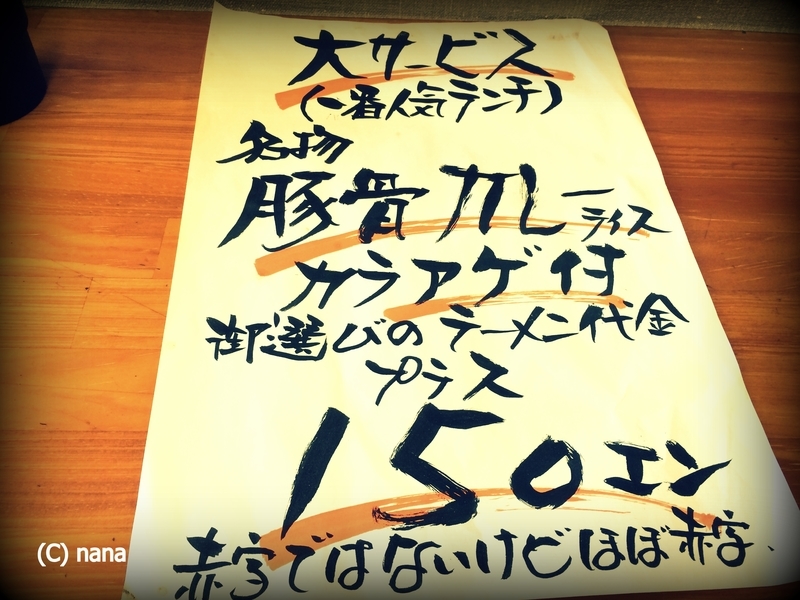 大サービス
(一番人気ランチ)
名物
豚骨カレーライス
カラアゲ付
御選びのラーメン代金
プラス
150エン
赤字ではないけどほぼ赤字、
(C) nana